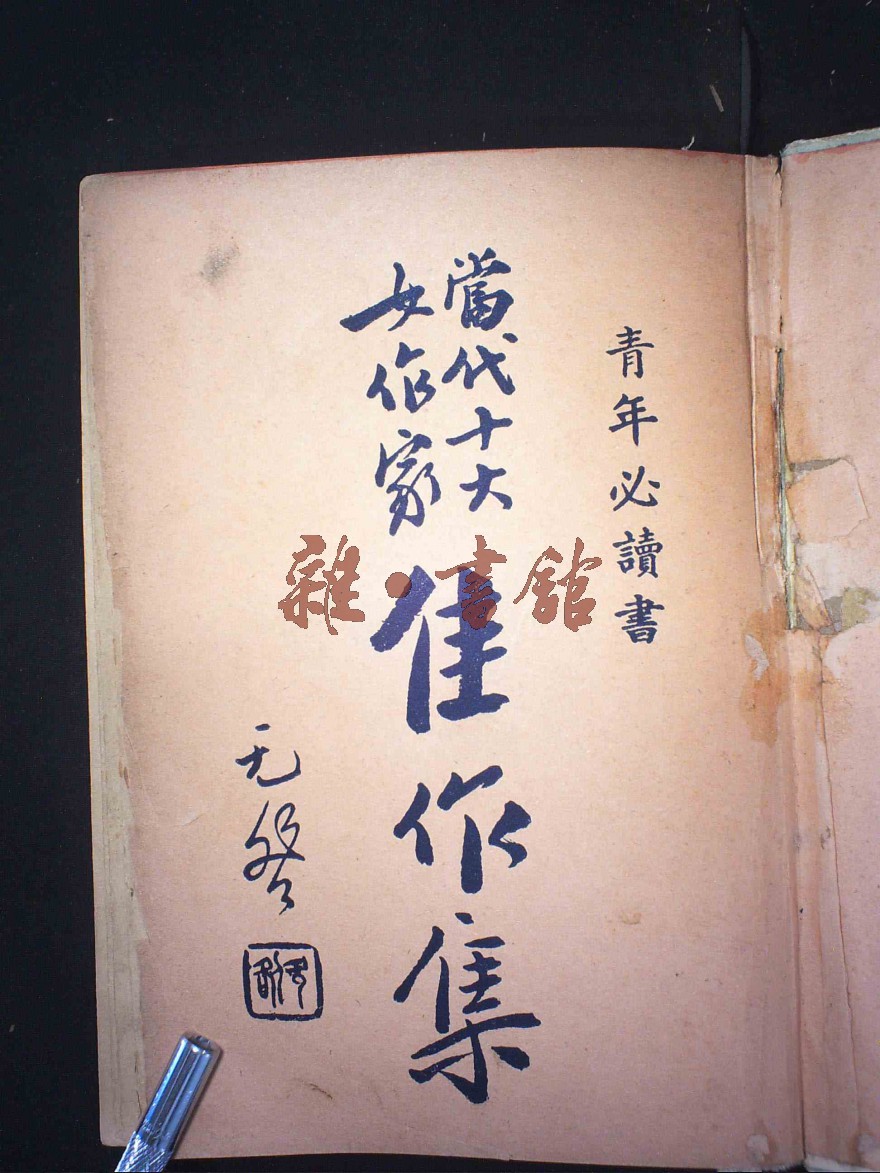 青年必讀書
當代十大
女作家
佳作集
雜·書館